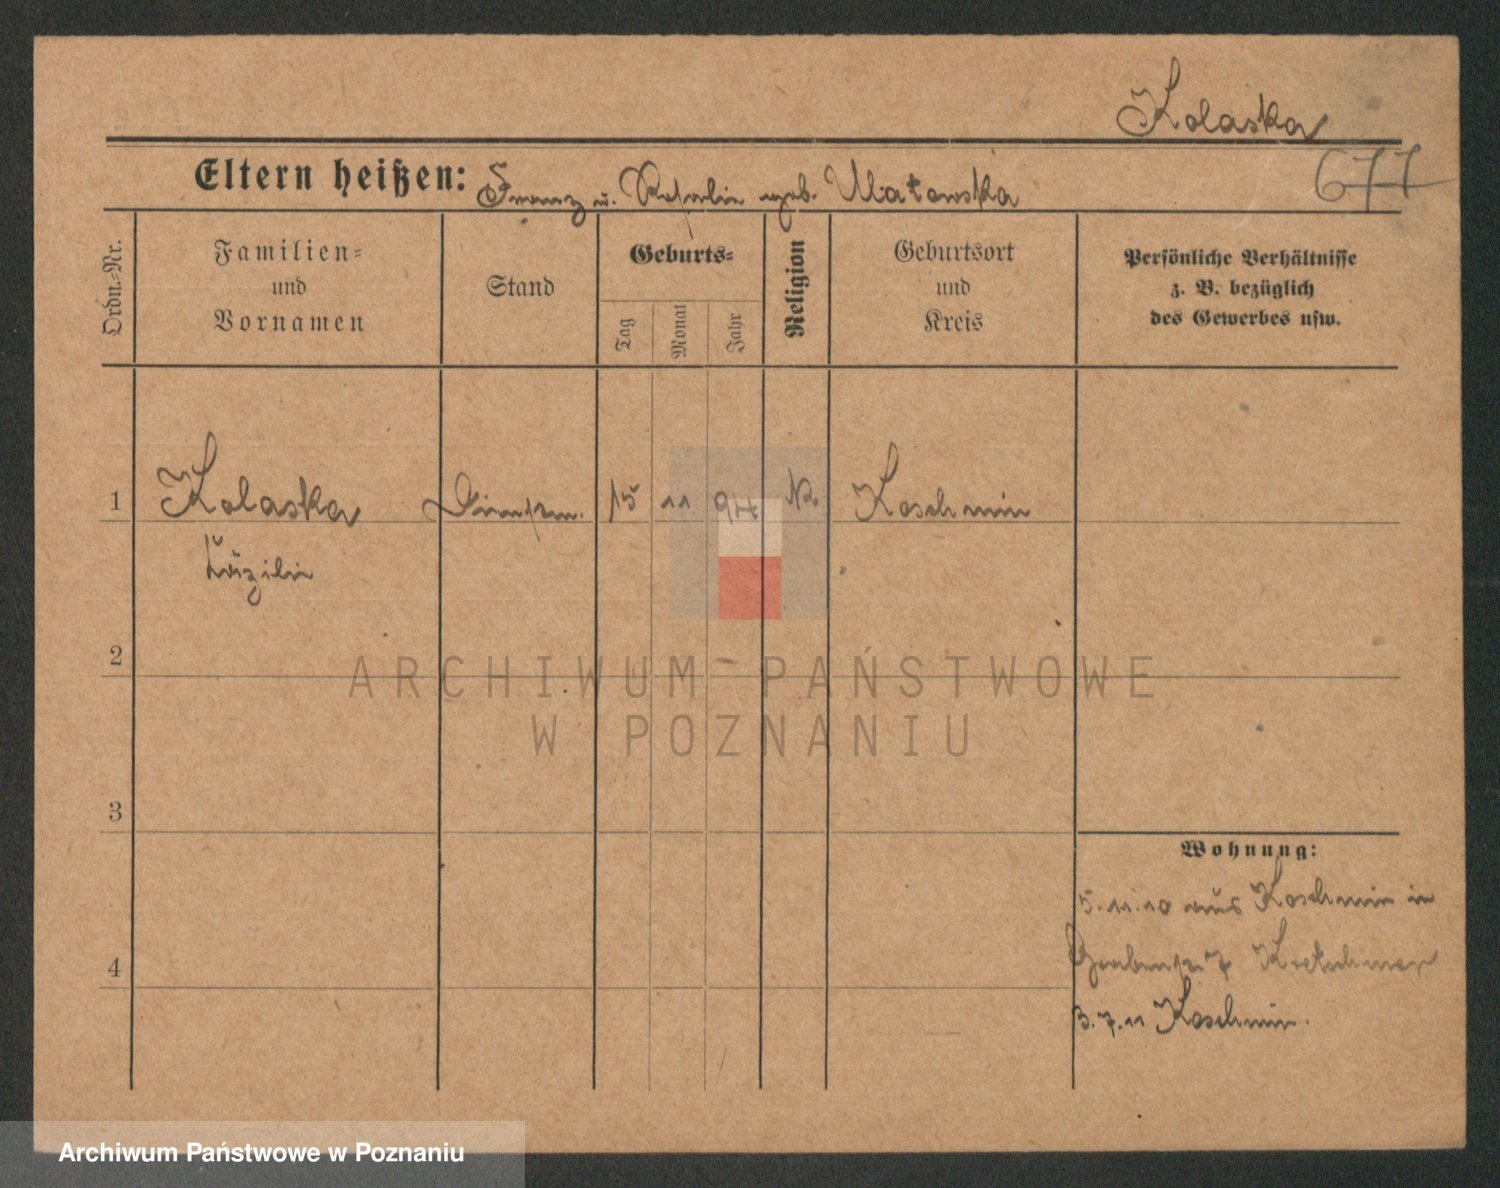 Kolaska
677
Eltern heißen: Franz u. Katharin geb. Matowska
Ordn.-Nr.
Familien-
und
Vornamen
Stand
Geburts-
Tag
Monat
Jahr
Religion
Geburtsort
und
Kreis
Persönliche Verhältnisse
z. B. bezüglich
des Gewerbes usw.
1 Kolaska 15 11 94 K. Koschmin
Cäzilie
2
ARCHIWUM PAŃSTWOWE
W POZNANIU
3
Wohnung:
5.11.10 aus Koschmin in
4
Grabenstr. 7 Kretschmer
3.7.11 Koschmin.
Archiwum Państwowe w Poznaniu